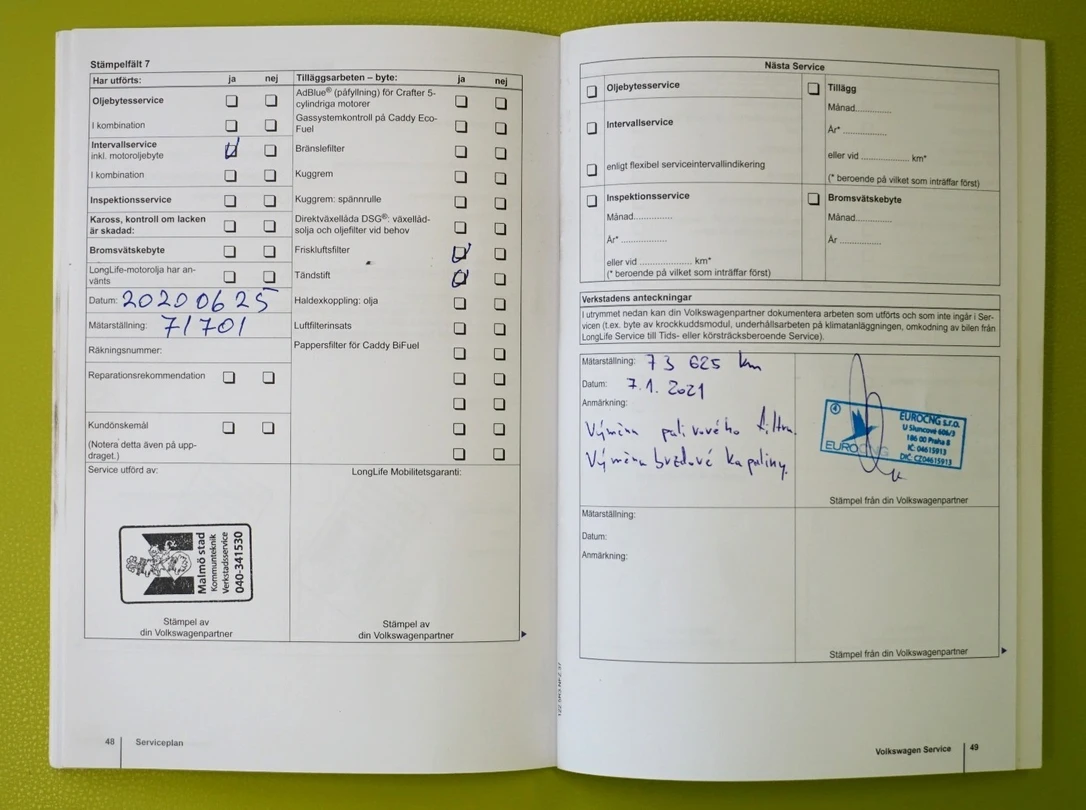 Stämpelfält 7
Har utförts: ja nej
Oljebytesservice
I kombination
Intervallservice
inkl. motoroljebyte
I kombination
Inspektionsservice
Kaross, kontroll om lacken
är skadad:
Bromsvätskebyte
LongLife-motorolja har an-
vänts
Datum: 20200625
Mätarställning: 71701
Räkningsnummer:
Reparationsrekommendation
Kundönskemål
(Notera detta även på upp-
draget.)
Service utförd av:
Malmö stad
Kommunteknik
Verkstadsservice
040-341530
Stämpel av
din Volkswagenpartner
Tilläggsarbeten – byte: ja nej
AdBlue® (påfyllning) för Crafter 5-
cylindriga motorer
Gassystemkontroll på Caddy Eco-
Fuel
Bränslefilter
Kuggrem
Kuggrem: spännrulle
Direktväxellåda DSG®: växellåd-
solja och oljefilter vid behov
Friskluftsfilter
Tändstift
Haldexkoppling: olja
Luftfilterinsats
Pappersfilter för Caddy BiFuel
LongLife Mobilitetsgaranti:
Stämpel av
din Volkswagenpartner
48 Serviceplan
Nästa Service
Oljebytesservice
Intervallservice
enligt flexibel serviceintervallindikering
Inspektionsservice
Månad..............
År* ................
eller vid ................ km*
(* beroende på vilket som inträffar först)
Tillägg
Månad..............
År* ...............
eller vid ................. km*
(* beroende på vilket som inträffar först)
Bromsvätskebyte
Månad..............
År ..............
Verkstadens anteckningar
I utrymmet nedan kan din Volkswagenpartner dokumentera arbeten som utförts och som inte ingår i Ser-
vicen (t.ex. byte av krockkuddsmodul, underhållsarbeten på klimatanläggningen, omkodning av bilen från
LongLife Service till Tids- eller körsträcksberoende Service).
Mätarställning: 73 625 km
Datum: 7.1.2021
Anmärkning:
Výměna palivového filtru.
Výměna brzdové kapaliny.
4
EUROCNG
EUROCNG s.r.o.
U Sluncové 606/3
186 00 Praha 8
IČ: 04615913
DIČ: CZ04615913
Stämpel från din Volkswagenpartner
Mätarställning:
Datum:
Anmärkning:
Stämpel från din Volkswagenpartner
Volkswagen Service 49